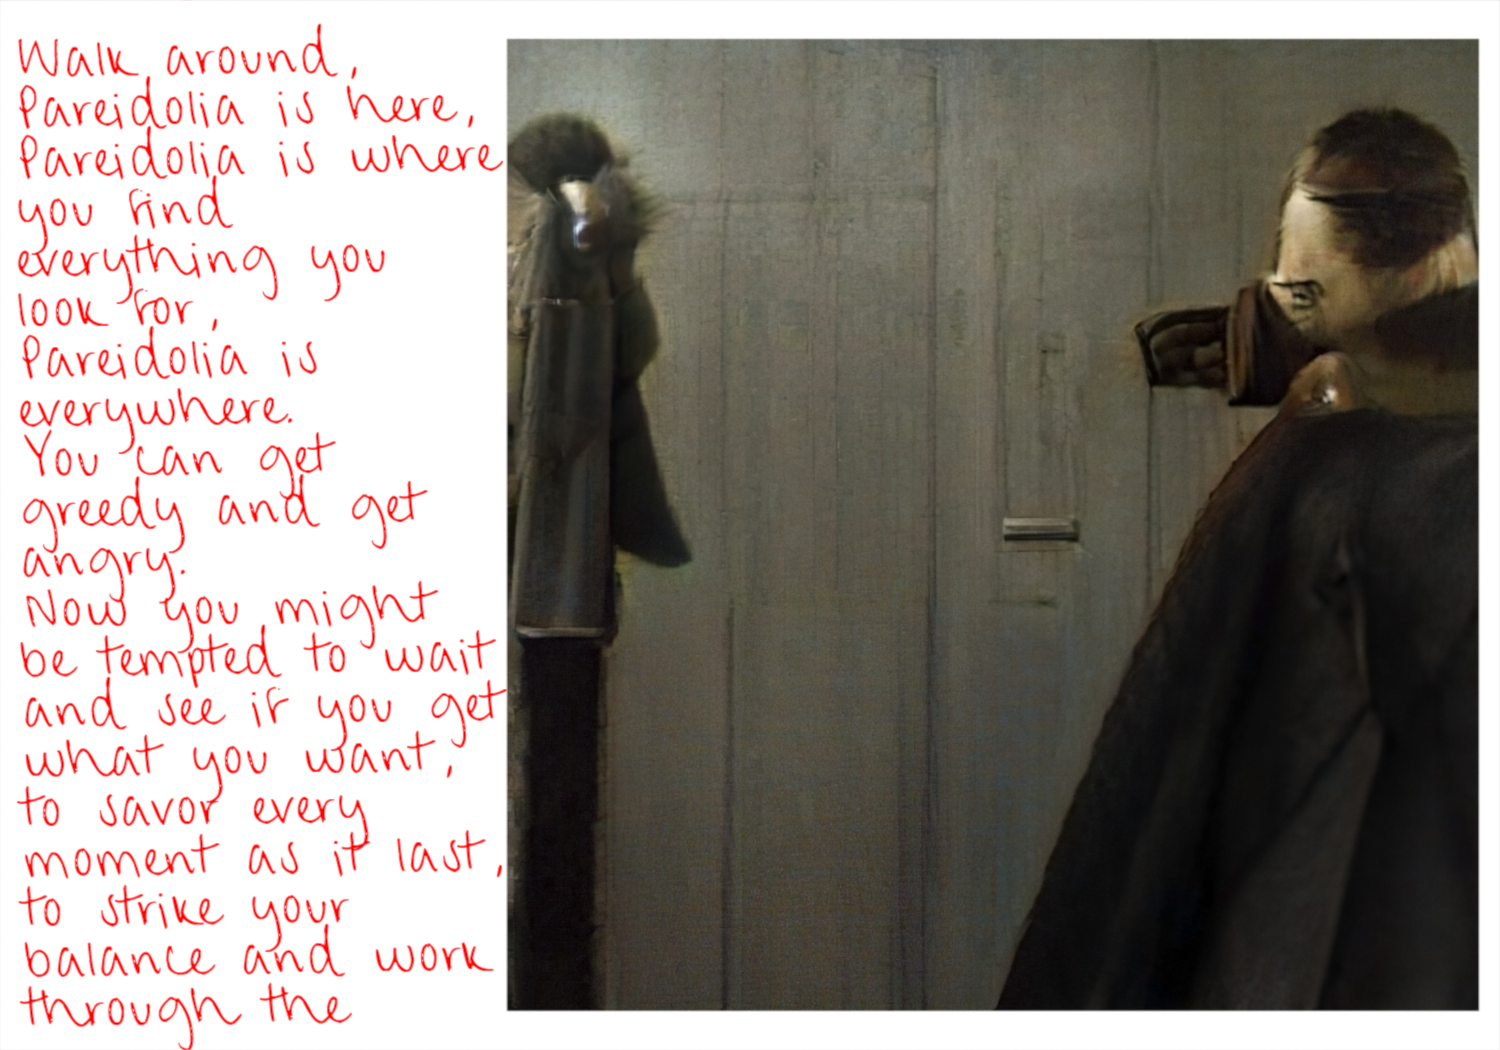 Walk around,
Pareidolia is here,
Pareidolia is where
you find
everything you
look for,
Pareidolia is
everywhere.
You can get
greedy and get
angry.
Now you might
be tempted to wait
and see if you get
what you want,
to savor every
moment as it last,
to strike your
balance and work
through the